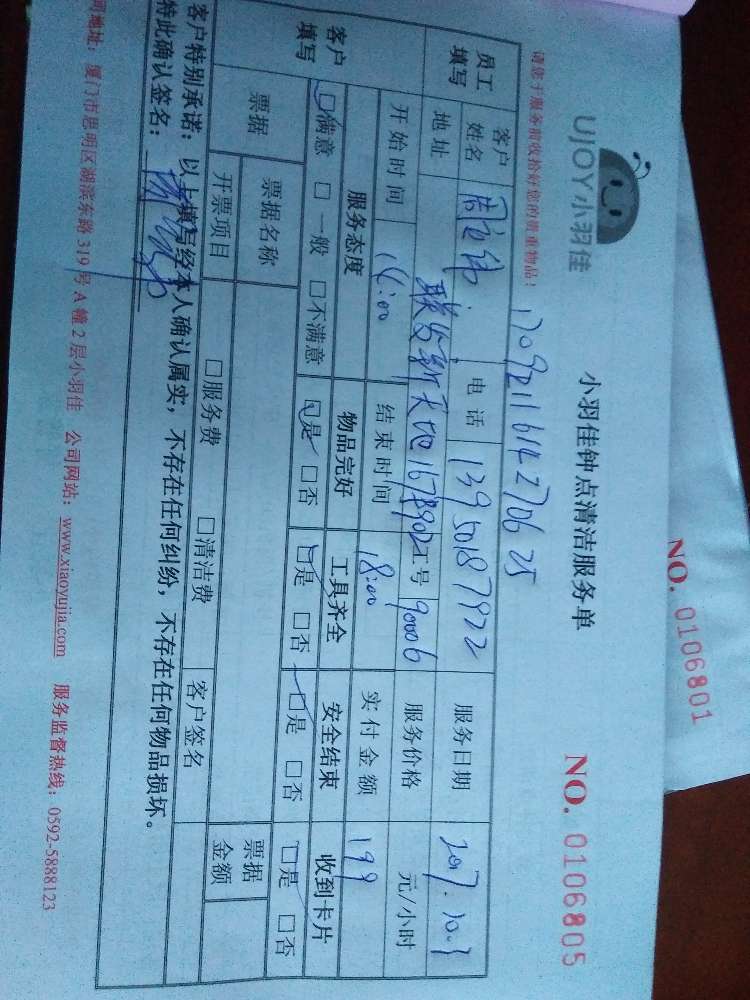 NO. 0106801
UJOY小羽佳
小羽佳钟点清洁服务单
NO. 0106805
请您于服务前收拾好您的贵重物品：
1709211614270625
员工填写
客户姓名
电话 13950187922
服务日期 2017.10.3
地址 联发新天地167号902
工号 90006
服务价格 元/小时
开始时间 14:00
结束时间 18:00
实付金额 199
客户填写
服务态度 物品完好 工具齐全 安全结束 收到卡片
□满意 □一般 □不满意 □是 □否 □是 □否 □是 □否 □是 □否
票据
票据名称
开票项目 □服务费 □清洁费
客户签名
票据金额
客户特别承诺：以上填写经本人确认属实，不存在任何纠纷，不存在任何物品损坏。
特此确认签名：
司地址：厦门市思明区湖滨东路319号A幢2层小羽佳 公司网站：www.xiaoyujia.com 服务监督热线：0592-5888123